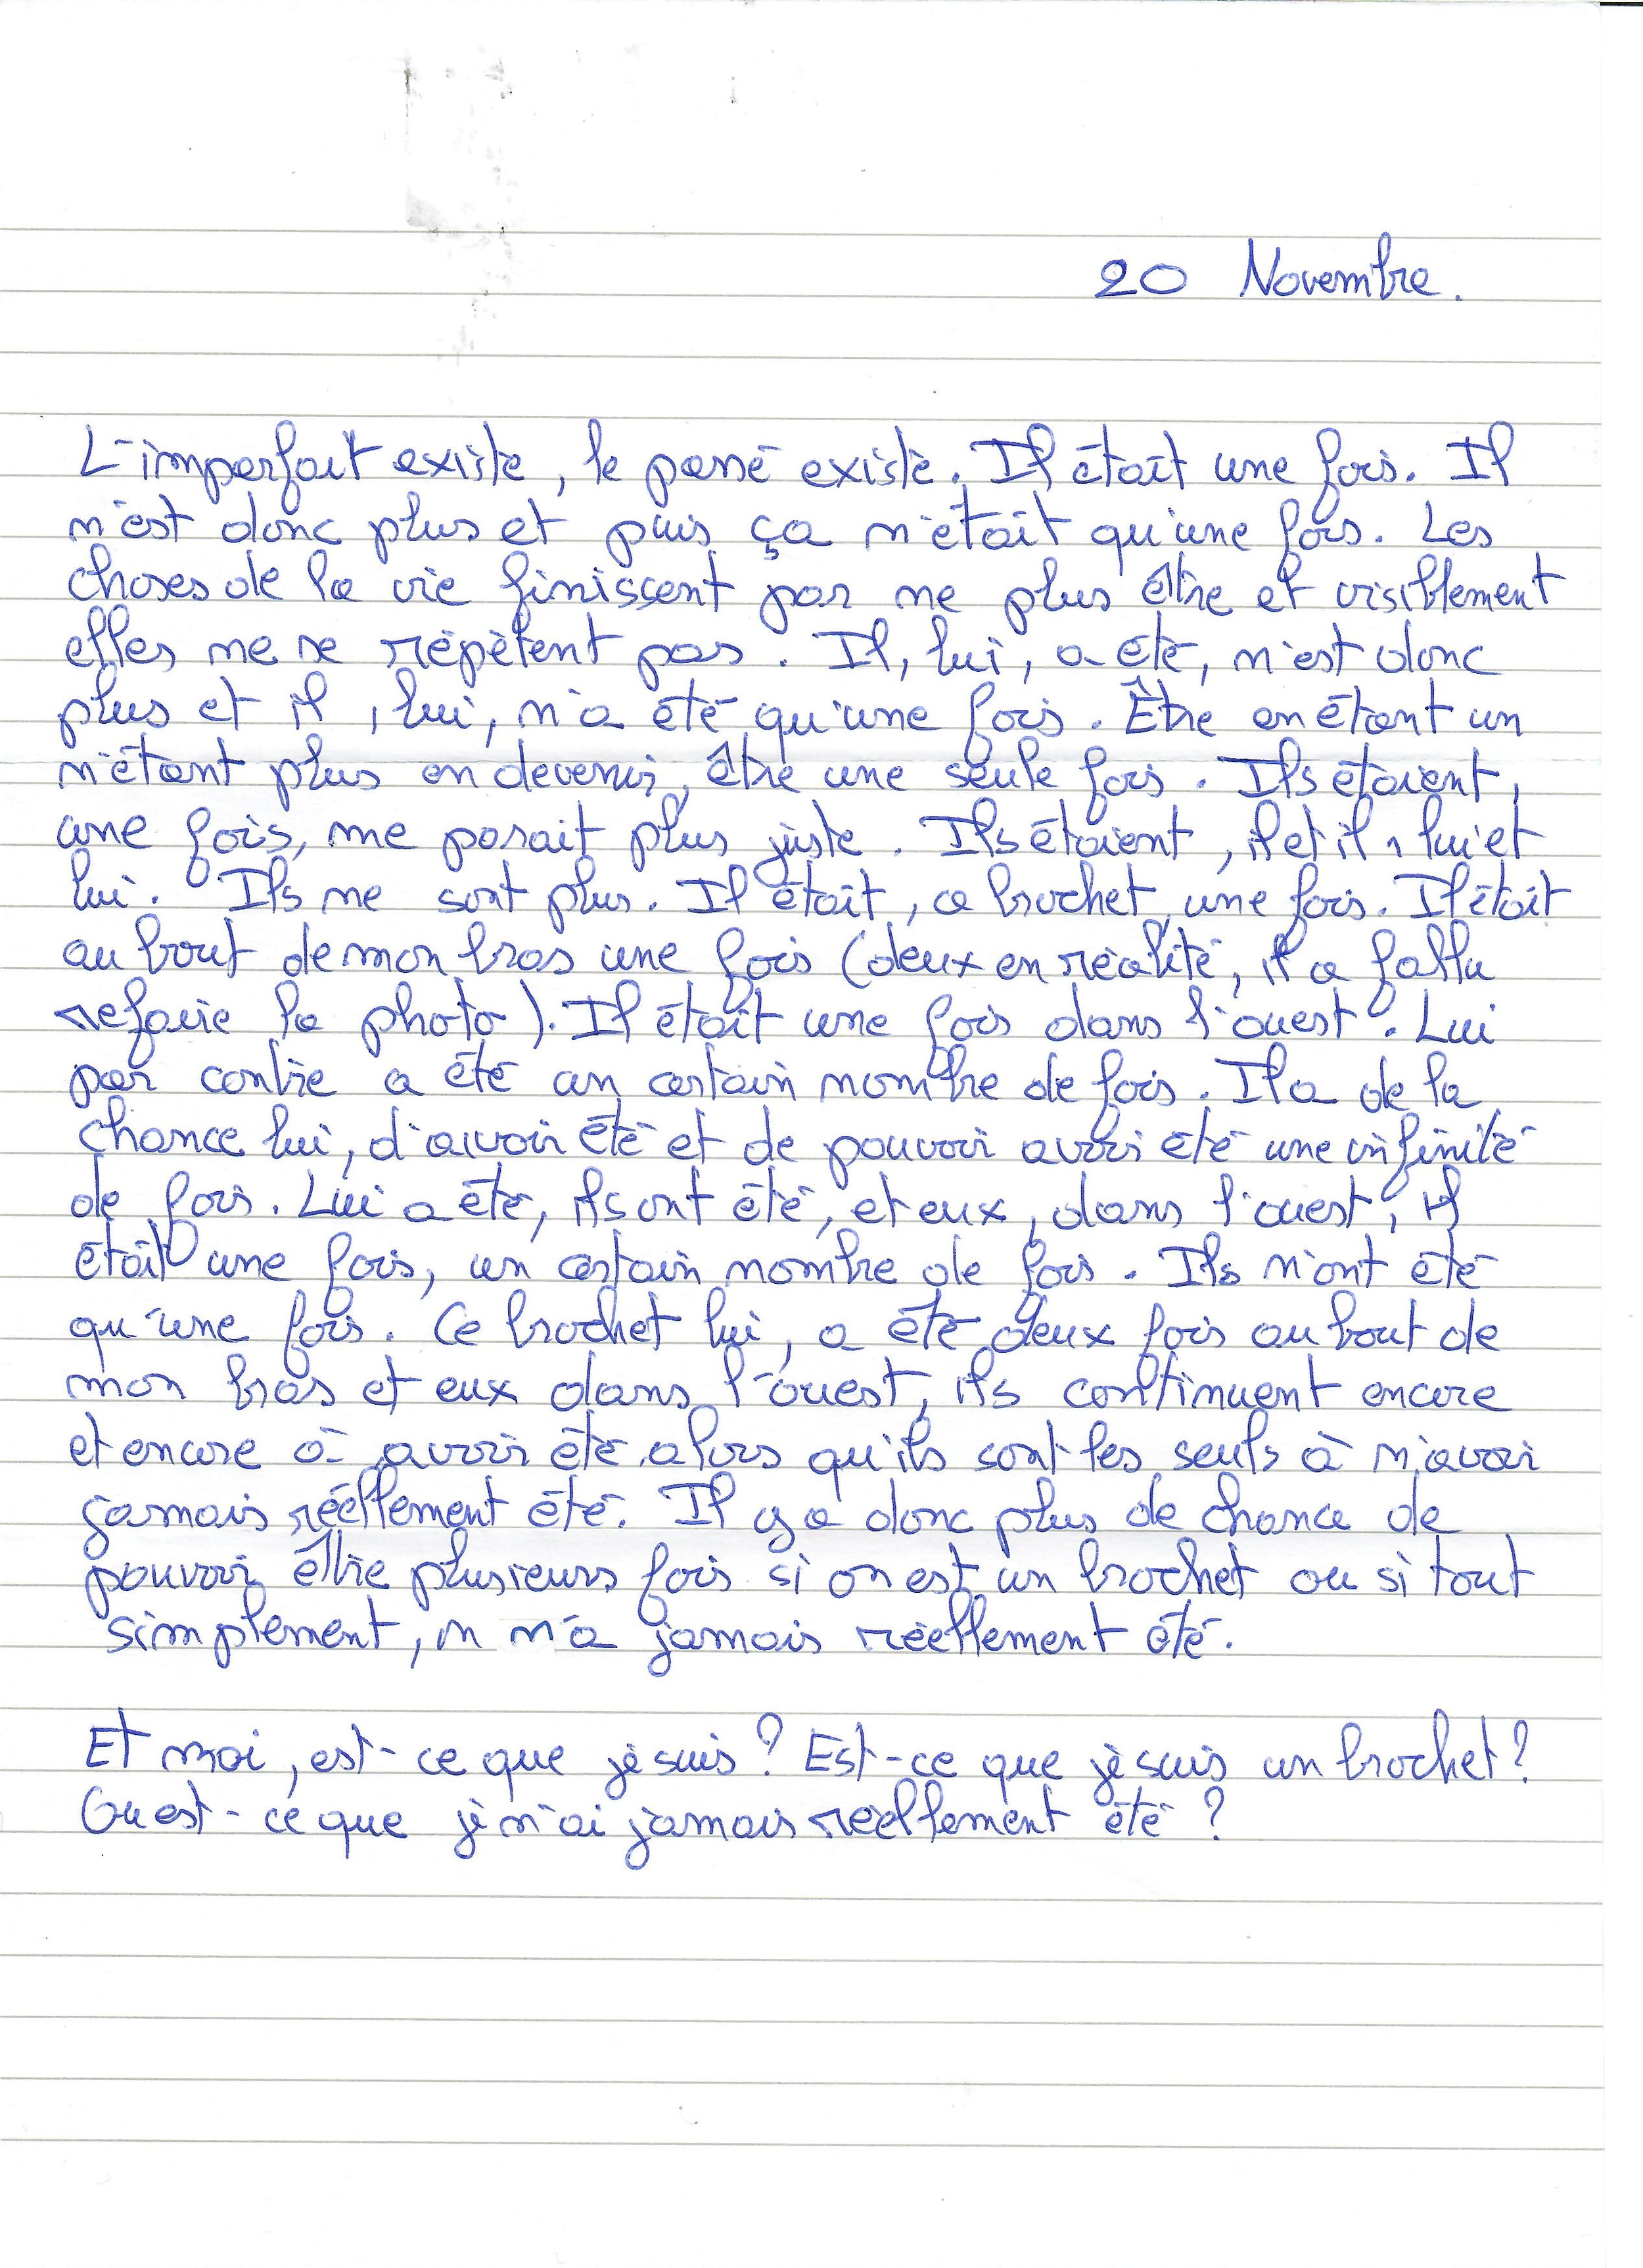 20 Novembre.
L'imparfait existe, le passé existe. Il était une fois. Il
n'est donc plus et puis ça n'était qu'une fois. Les
choses de la vie finissent par ne plus être et visiblement
elles ne se répètent pas. Il, lui, a été, n'est donc
plus et il, lui, n'a été qu'une fois. Être en étant un
n'étant plus en devenir, être une seule fois. Ils étaient,
une fois, me parait plus juste. Ils étaient, il et il, lui et
lui. Ils ne sont plus. Il était, ce brochet, une fois. Il était
au bout de mon bras une fois (deux en réalité, il a fallu
refaire la photo). Il était une fois dans l'ouest. Lui
par contre a été un certain nombre de fois. Il a de la
chance lui, d'avoir été et de pouvoir avoir été une infinité
de fois. Lui a été, ils ont été, et eux, dans l'ouest, il
était une fois, un certain nombre de fois. Ils n'ont été
qu'une fois. Ce brochet lui, a été deux fois au bout de
mon bras et eux dans l'ouest, ils continuent encore
et encore à avoir été alors qu'ils sont les seuls à n'avoir
jamais réellement été. Il y a donc plus de chance de
pouvoir être plusieurs fois si on est un brochet ou si tout
simplement, on n'a jamais réellement été.
Et moi, est-ce que je suis? Est-ce que je suis un brochet?
Ou est-ce que je n'ai jamais réellement été?